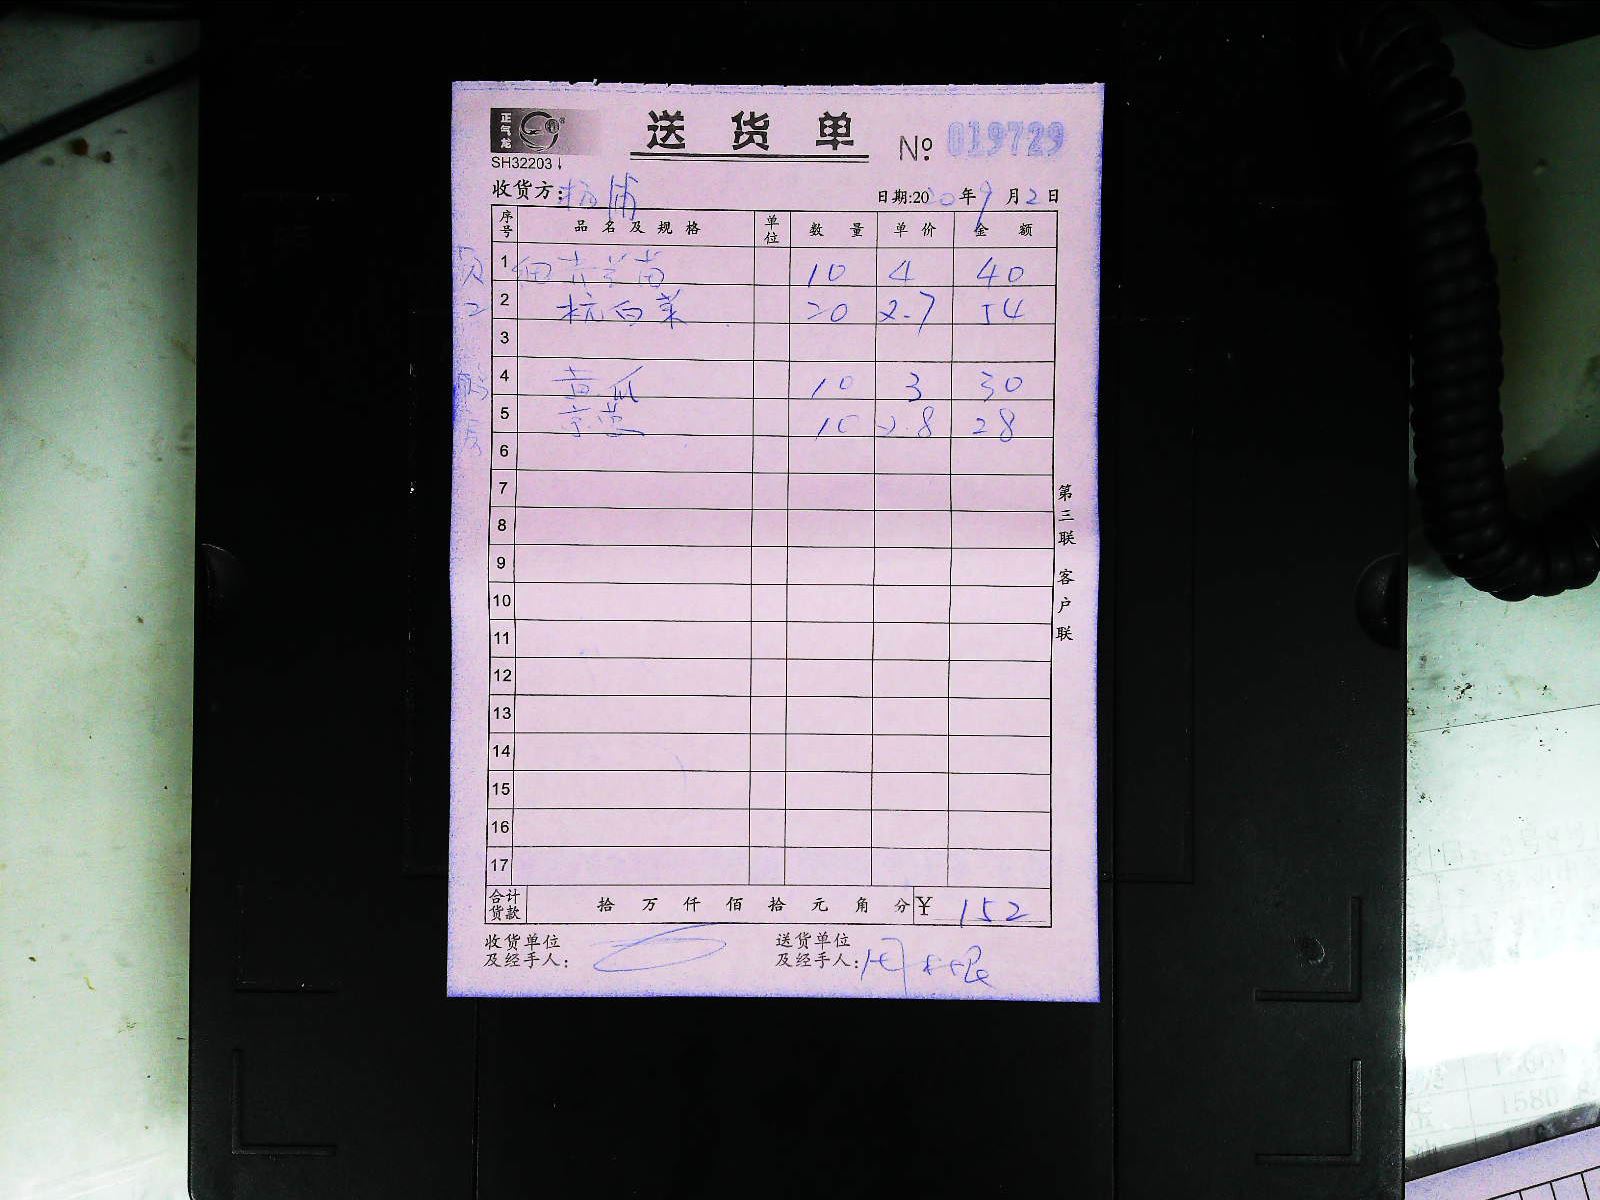 正气龙
送货单 № 019729
SH32203
收货方: 杨浦 日期:20 0年9月2日
序号 品名及规格 单位 数量 单价 金额
1 10 4 40
2 杭白菜 20 2.7 54
3
4 黄瓜 10 3 30
5 京葱 10 2.8 28
6
7
8
9
10
11
12
13
14
15
16
17
第三联 客户联
合计货款 拾 万 仟 佰 拾 元 角 分 ¥ 152
收货单位 送货单位
及经手人: 及经手人:
1580